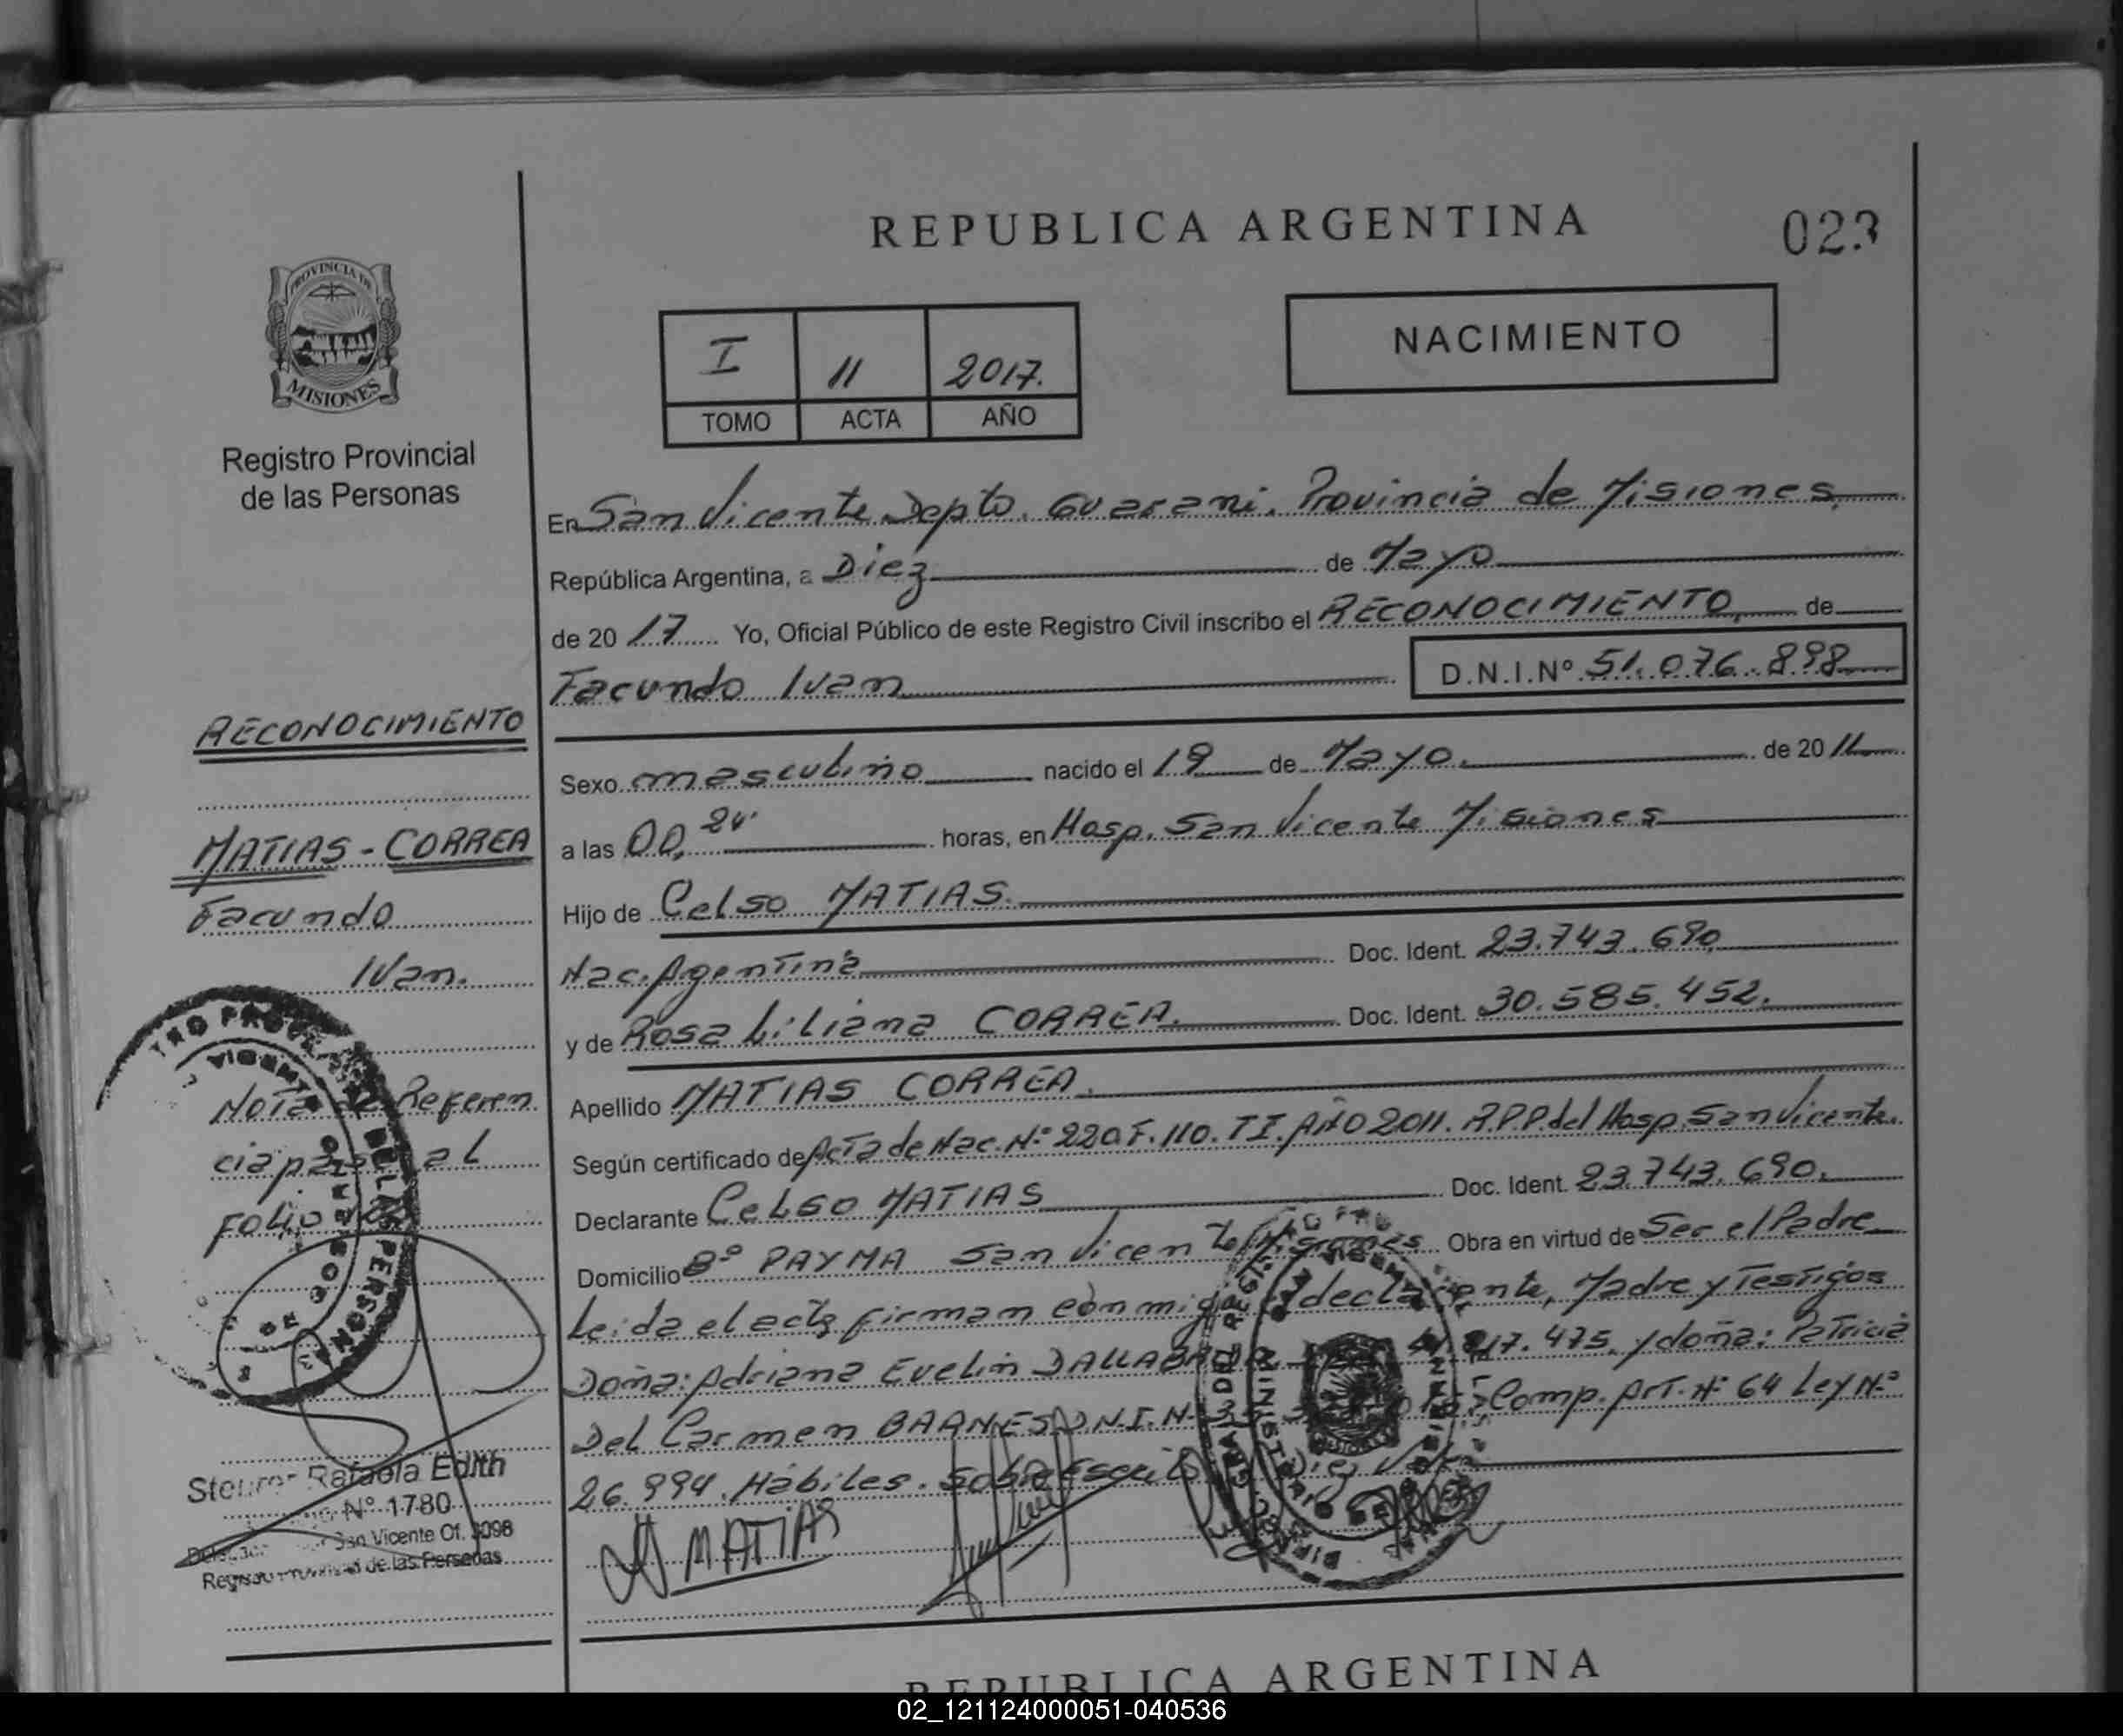 REPUBLICA ARGENTINA
023
PROVINCIA DE
MISIONES
Registro Provincial
de las Personas
I 11 2017.
TOMO ACTA AÑO
NACIMIENTO
En San Vicente Depto. Guarani. Provincia de Misiones
República Argentina, a Diez de Mayo
de 20 17 Yo, Oficial Público de este Registro Civil inscribo el RECONOCIMIENTO, de
Facundo Ivan D.N.I.Nº 51.076.898
Sexo masculino nacido el 19 de Mayo. de 20 11
a las 00, 24' horas, en Hosp. San Vicente Misiones
Hijo de Celso MATIAS.
Nac. Agentina Doc. Ident. 23.743.690
y de Rosa Liliana CORREA. Doc. Ident. 30.585.452.
Apellido MATIAS CORREA.
Según certificado de Acta de Nac. Nº 220 F. 110. TI. AÑO 2011. R.P.P. del Hosp. San Vicente.
Declarante Celso MATIAS Doc. Ident. 23.743.690.
Domicilio Bº PAYMA San Vicente Misiones Obra en virtud de Ser el Padre
Leida el acta firman conmigo el declarante, Madre y Testigos
Doña: Adriana Evelin 817.475. y doña: Patricia
Del Carmen BARNES D.N.I. Nº Comp. Art. Nº 64 Ley Nº
26.994. Hábiles. Sobre Escrito Diez Vale.
MATIAS
RECONOCIMIENTO
MATIAS - CORREA
Facundo
Ivan.
Nota de Referen
cia para al
Folio
Rafaela Edith
Nº 1780
San Vicente Of. 3098
de las Personas
REPUBLICA ARGENTINA
02_121124000051-040536